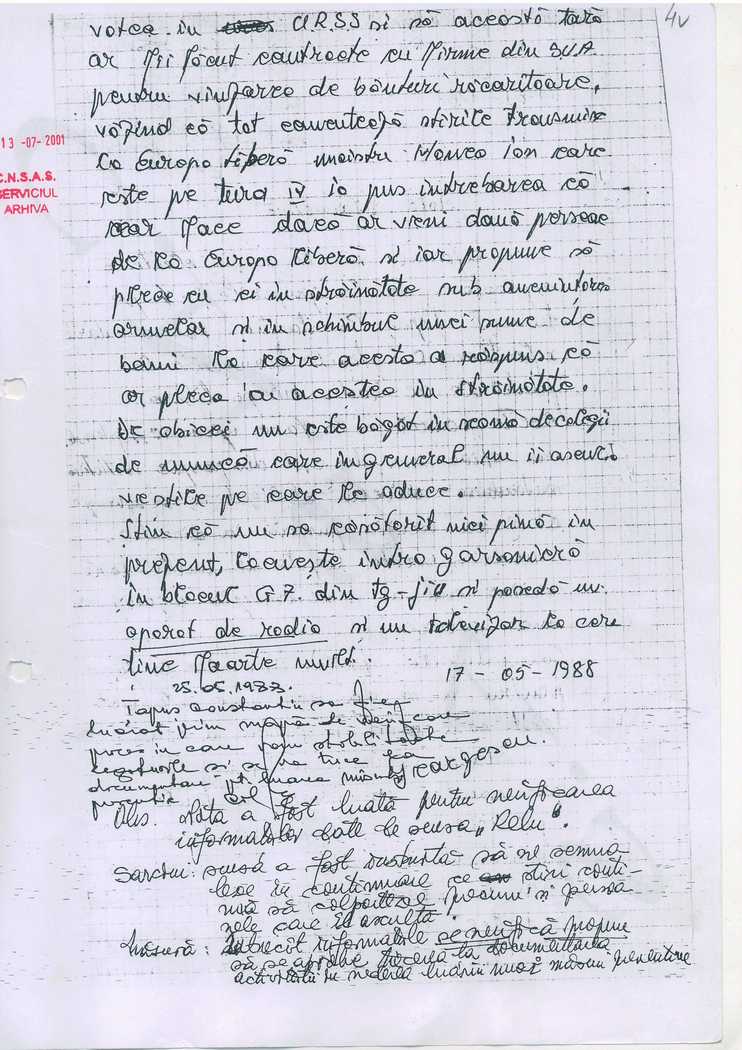 4v
votca in U.R.S.S si să această tară
ar fi făcut contracte cu firme din SUA
pentru vinzarea de băuturi răcoritoare,
văzind că tot comentează stirile transmise
la Europa liberă maistru Manea Ion care
este pe tura IV ia pus intrebarea că
ce ar face dacă ar veni două persoane
de la Europa liberă si iar propune să
plece cu ei in străinătate sub amenintarea
armelor si in schimbul unei sume de
bani la care acesta a răspuns că
ar pleca cu acestea in străinătate.
De obicei nu este băgat in seamă de colegii
de muncă care in general nu ii ascultă
vestile pe care le aduce.
Stiu că nu sa căsătorit nici pină in
prezent, locueste intro garsonieră
in blocul G 7. din Tg-jiu si posedă un
aparat de radio si un televizor la care
tine foarte mult.
17 - 05 - 1988
25.05.1988.
Tapus Constantin sa fie
lucrat prin mapă de verificare
in care vom stabili toate
legăturile si se va trece la
documentare pt. luarea măsurii
Georgescu.
Obs. Nota a fost luată pentru verificarea
informatiilor date de sursa "Relu".
Sarcini: sursa a fost instruită să ne semna-
leze in continuare ce stiri conti-
nuă să colporteze precum si persoa
nele care il ascultă.
Măsură: Intrucit informatiile se verifică propun
să se aprobe trecerea la documentarea
activitătii in vederea luării unei măsuri preventive
13 -07- 2001
C.N.S.A.S.
SERVICIUL
ARHIVA